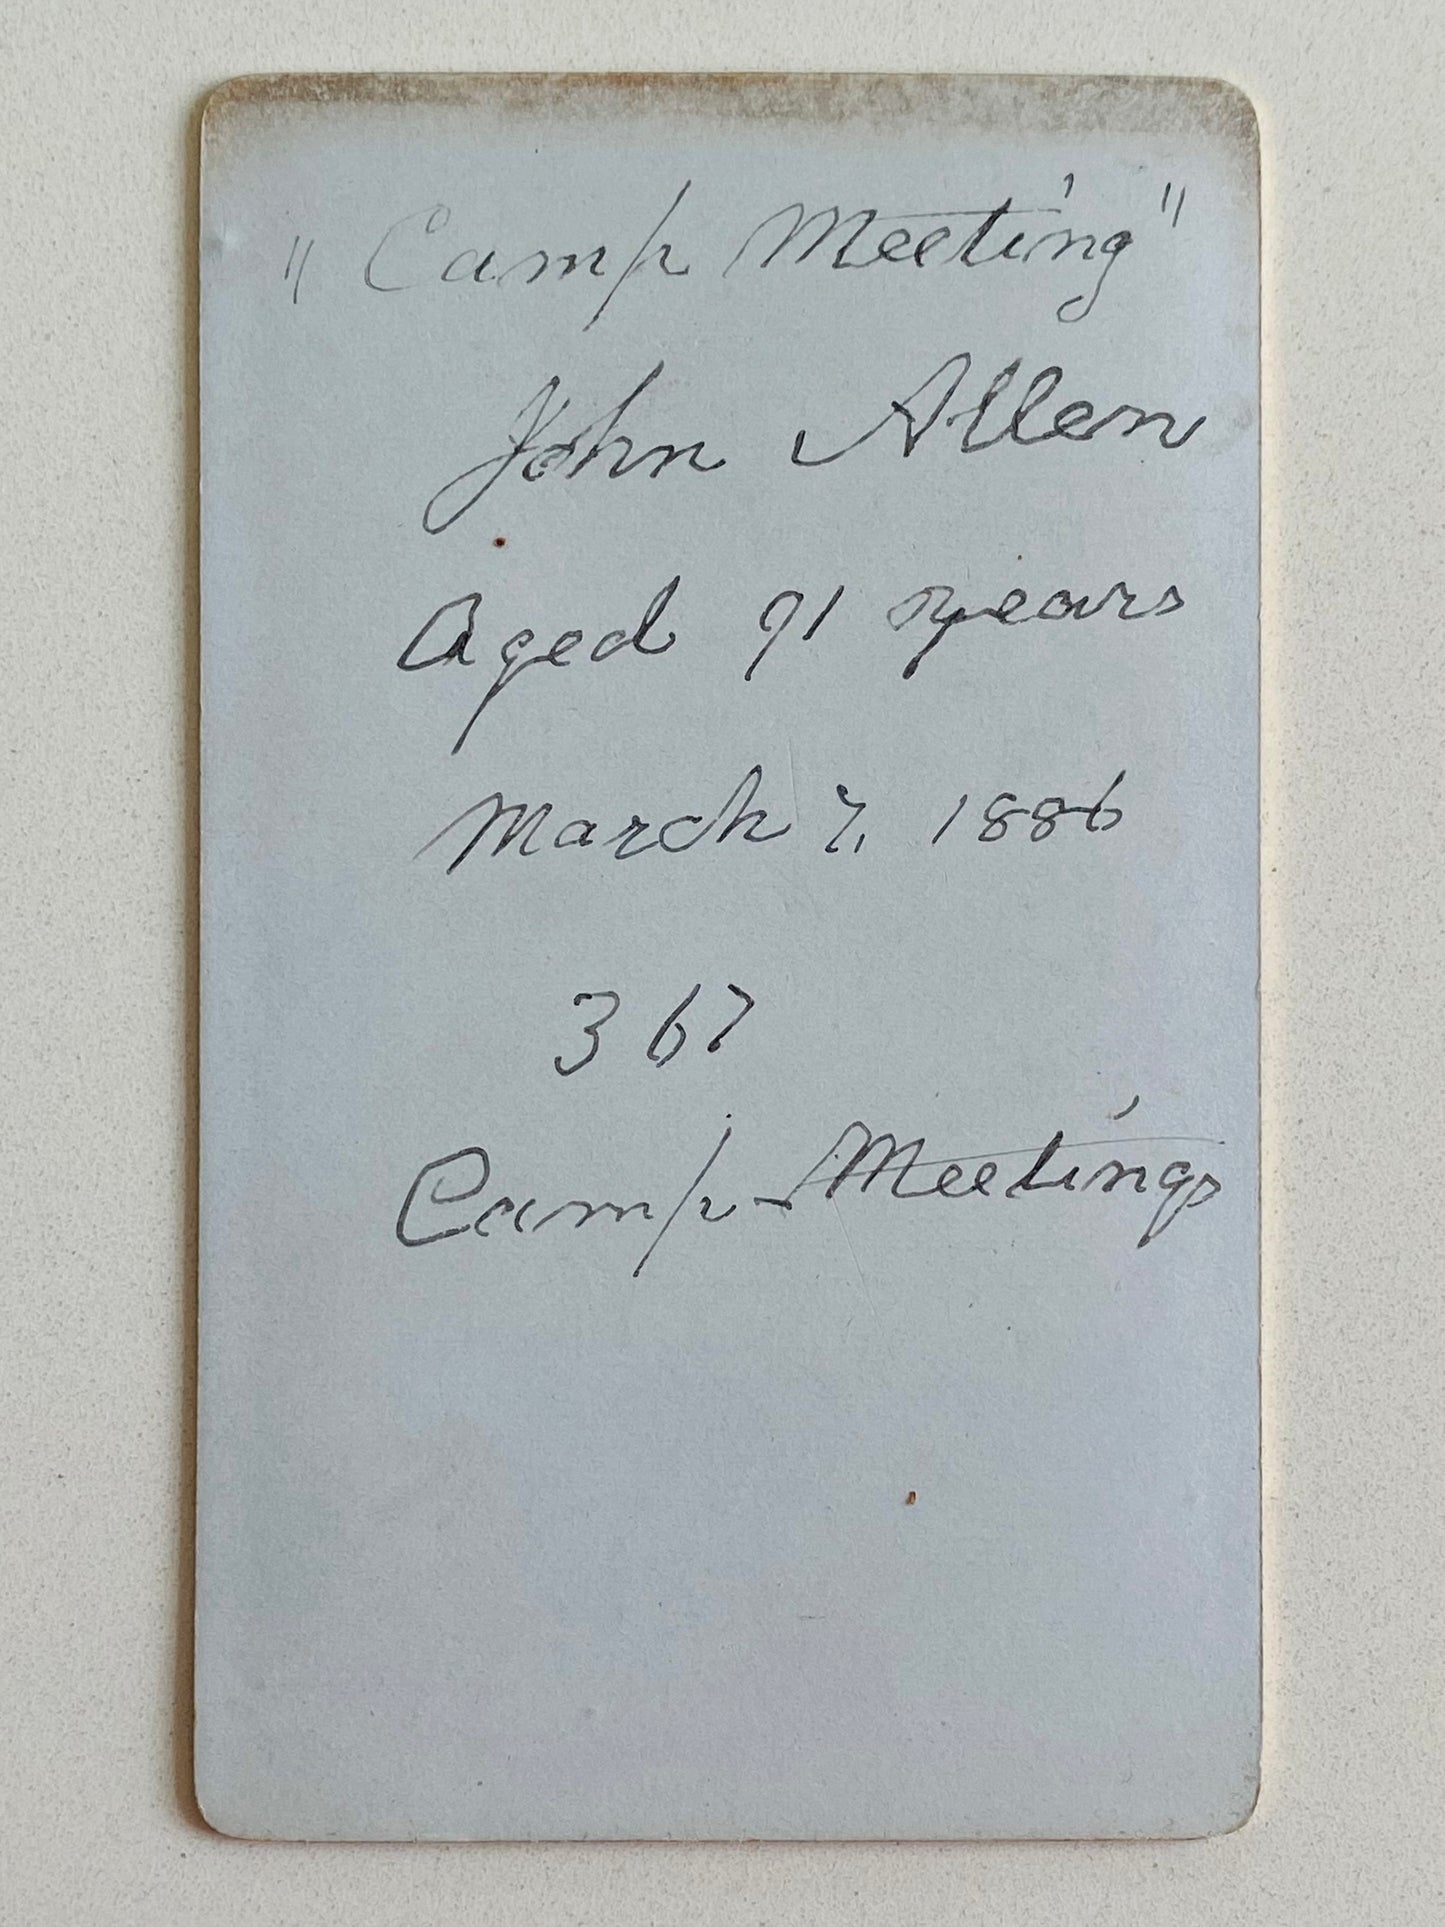 "Camp Meeting"
John Allen
Aged 91 years
March 7, 1886
367
Camp-Meetings